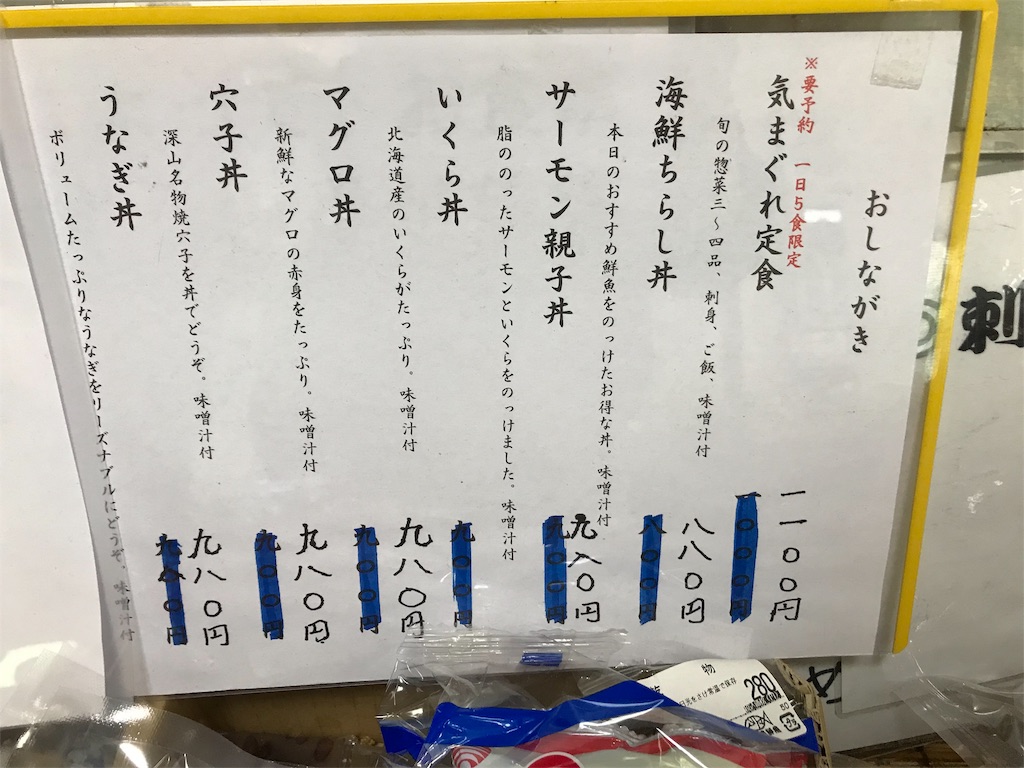 おしながき
※要予約 一日5食限定
気まぐれ定食
旬の惣菜三～四品、刺身、ご飯、味噌汁付
一一〇〇円
一〇〇〇円
海鮮ちらし丼
本日のおすすめ鮮魚をのっけたお得な丼。味噌汁付
八八〇円
八〇〇円
サーモン親子丼
脂ののったサーモンといくらをのっけました。味噌汁付
九八〇円
九〇〇円
いくら丼
北海道産のいくらがたっぷり。味噌汁付
九〇〇円
九八〇円
マグロ丼
新鮮なマグロの赤身をたっぷり。味噌汁付
九〇〇円
九八〇円
穴子丼
深山名物焼穴子を丼でどうぞ。味噌汁付
九〇〇円
九八〇円
うなぎ丼
ボリュームたっぷりなうなぎをリーズナブルにどうぞ。味噌汁付
九八〇円
刺
物
日光をさけ常温で保存
280